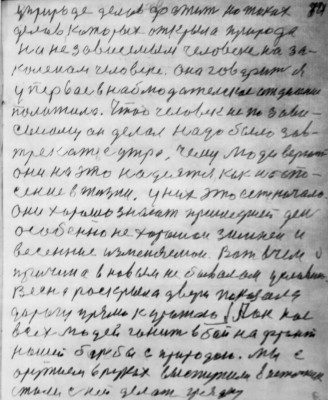 природе делов до этих но таких
делов которых открыла природа
на независемым человека на за-
коленам человеке. Она говорит я
у первые в наблюдателя
положила. Чтоб человек не по зави-
симому он делал надо было зав-
тре как с утра, чему люди верят
они на это надеятся как на спа-
сение в жизни, у них это есть начало
Они хорошо знают пришедшей ден
особенно не хорошои зимнеи и
весенние изменяемои. Вот в чем
причина в новым не бывалам условии.
Весна раскрыла двери показала
дорогу прямо к Пан нас
всех людей гонит в бой на фронт
нашей борбы с природои. Мы с
оружием в руках выступили в
стали с ней делат